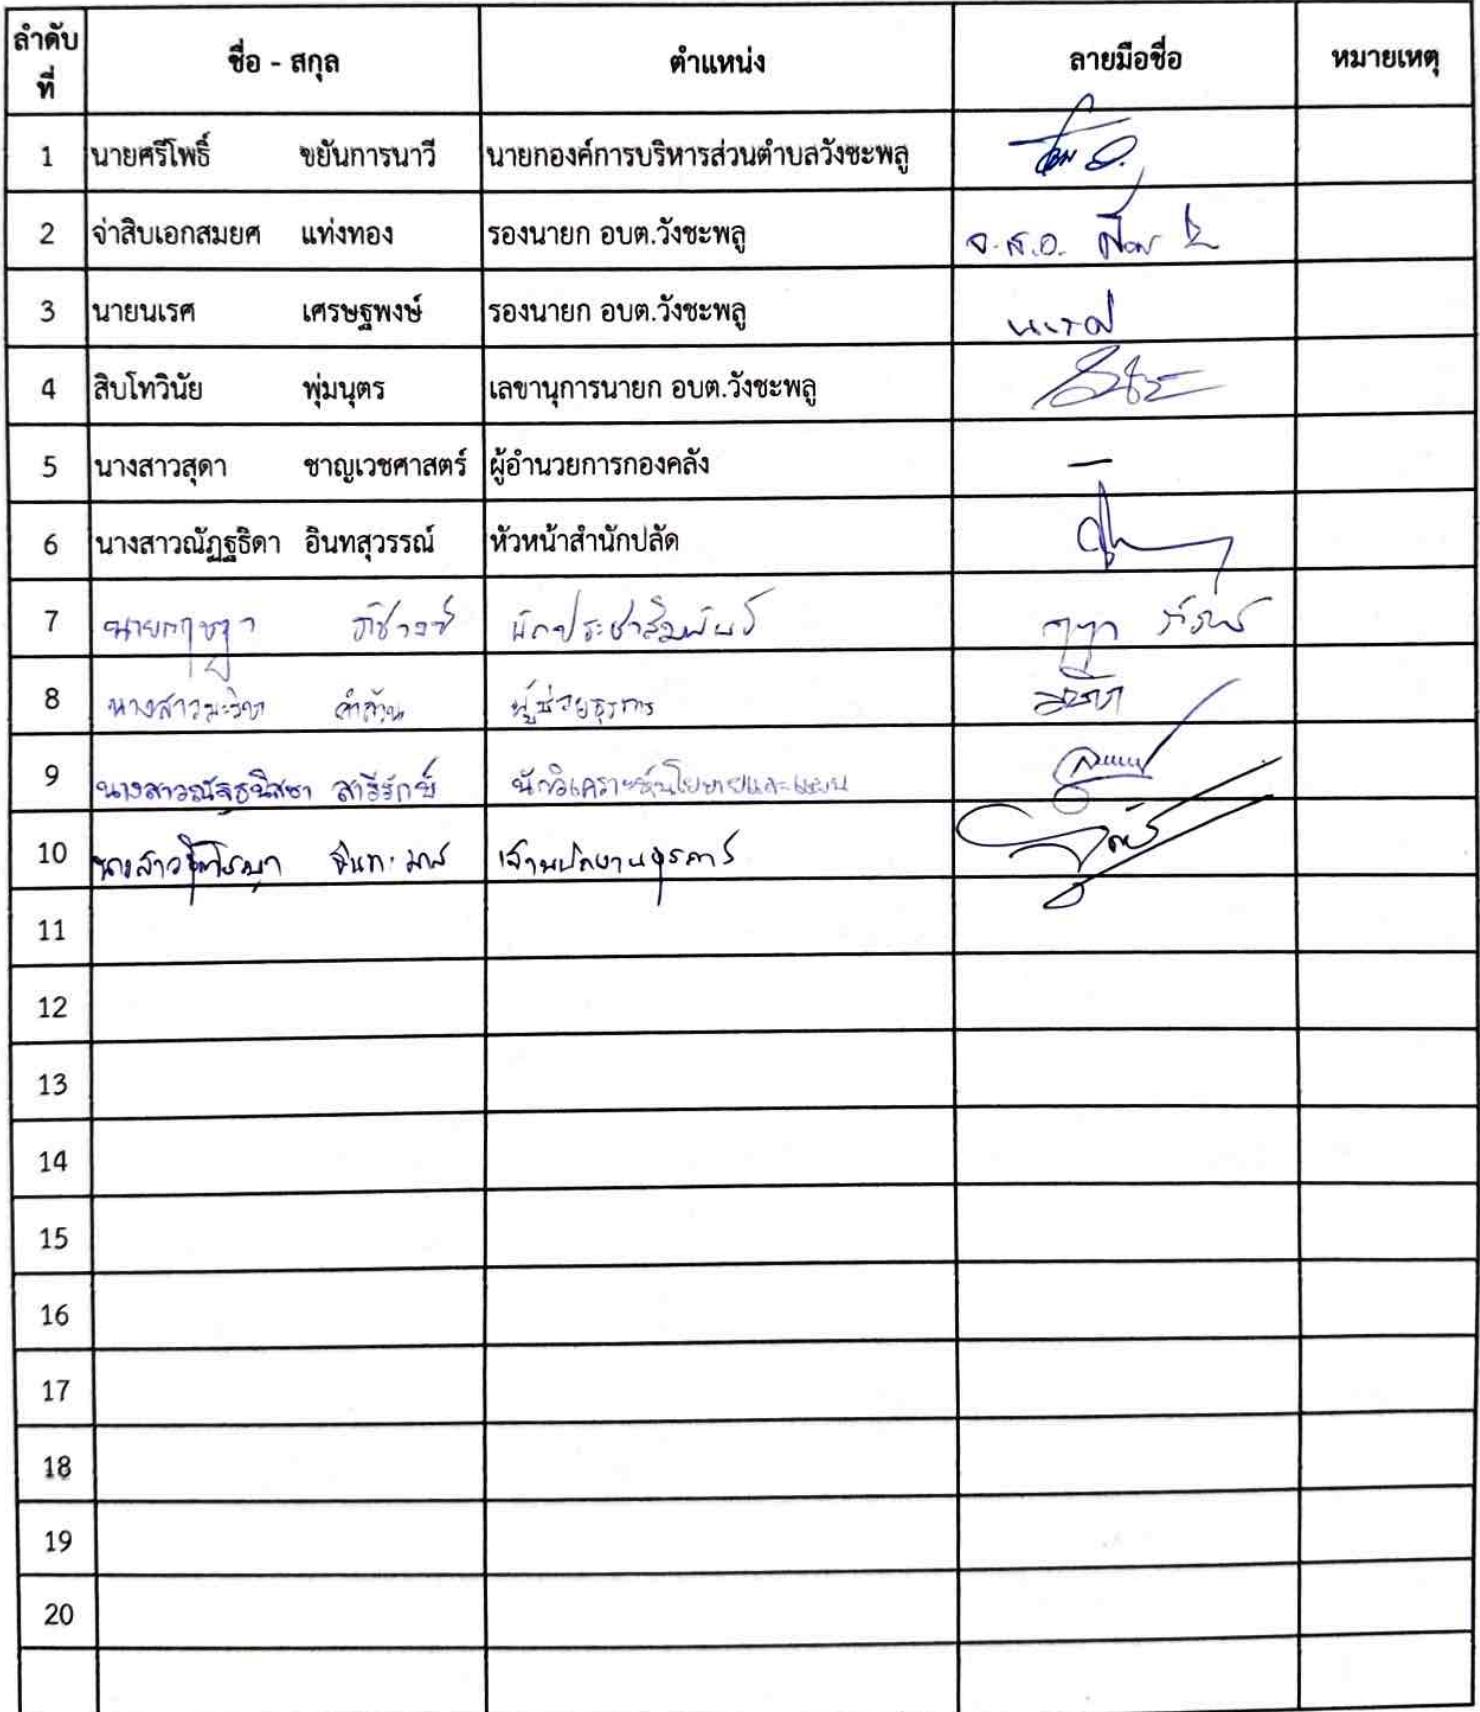 ลำดับที่ ชื่อ - สกุล ตำแหน่ง ลายมือชื่อ หมายเหตุ
1 นายศรีโพธิ์ ขยันการนาวี นายกองค์การบริหารส่วนตำบลวังชะพลู
2 จ่าสิบเอกสมยศ แท่งทอง รองนายก อบต.วังชะพลู จ.ส.อ.
3 นายนเรศ เศรษฐพงษ์ รองนายก อบต.วังชะพลู นเรศ
4 สิบโทวินัย พุ่มนุตร เลขานุการนายก อบต.วังชะพลู
5 นางสาวสุดา ชาญเวชศาสตร์ ผู้อำนวยการกองคลัง –
6 นางสาวณัฏฐธิดา อินทสุวรรณ์ หัวหน้าสำนักปลัด
7 นายกฤษฎา นักประชาสัมพันธ์
8 นางสาว ผู้ช่วยธุรการ
9 นางสาวณัฐธนิสชา สารีรักษ์ นักวิเคราะห์นโยบายและแผน
10 นางสาว เจ้าพนักงานธุรการ
11
12
13
14
15
16
17
18
19
20